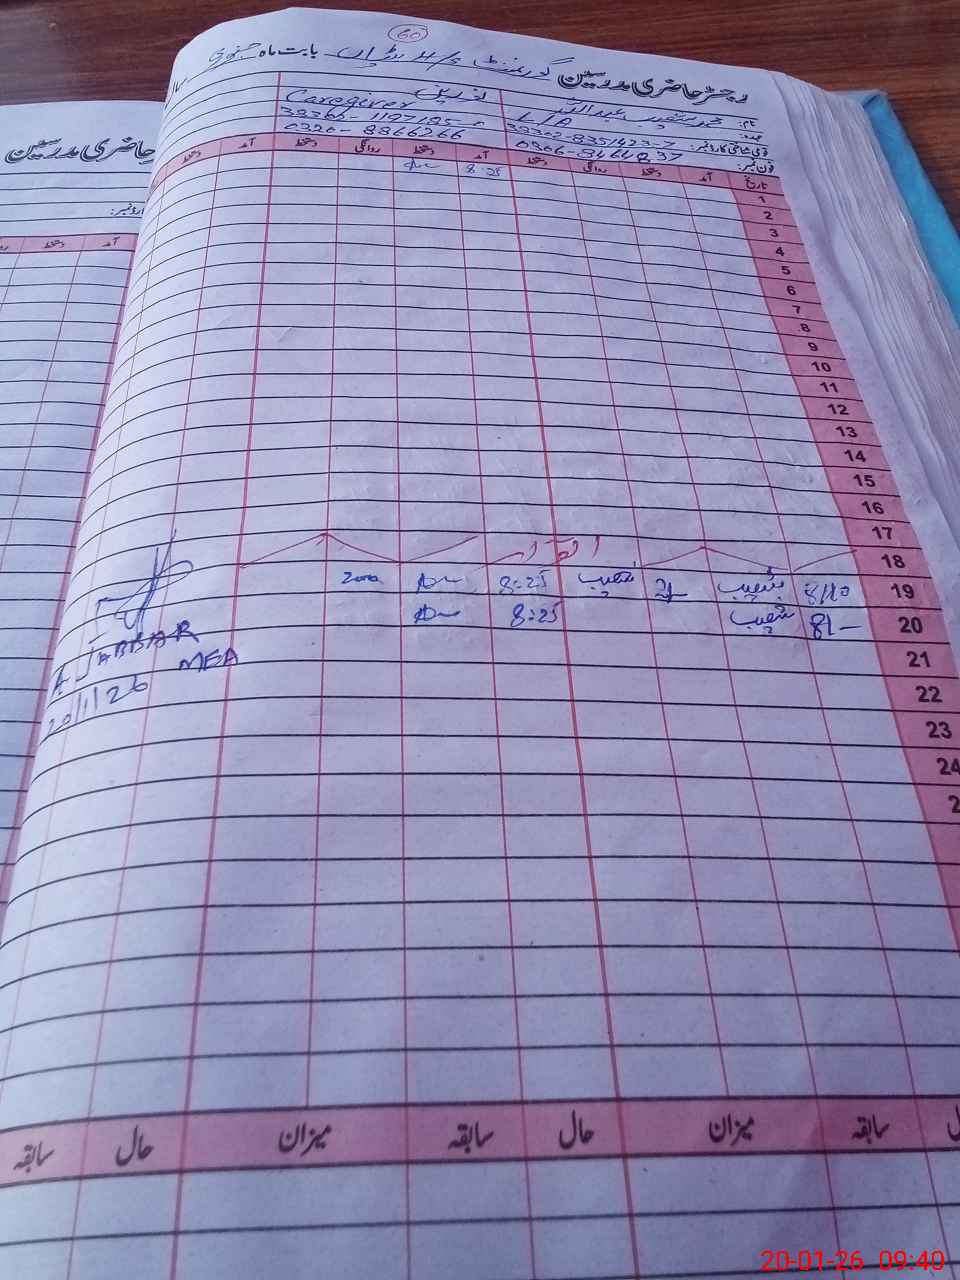 60
رجسٹر حاضری مدرسین گورنمنٹ H/S بابت ماہ جنوری سال
نام: محمد شعیب عبداللہ
عہدہ: L/A Caregiver
قومی شناختی کارڈ نمبر: 38302-8351423-7
فون نمبر: 0306-8464237 0320-8866266
تاریخ آمد دستخط روانگی دستخط آمد دستخط روانگی دستخط آمد دستخط
8:25
1
2
3
4
5
6
7
8
9
10
11
12
13
14
15
16
17
18 اتوار
19 8/10 شعیب شعیب 8:25
20 8/- شعیب 8:25
21
22
23
24
2
A JABBAR
MEA
20/1/26
سابقہ میزان حال سابقہ میزان حال سابقہ
حاضری مدرسین
آمد دستخط
20-01-26 09:40